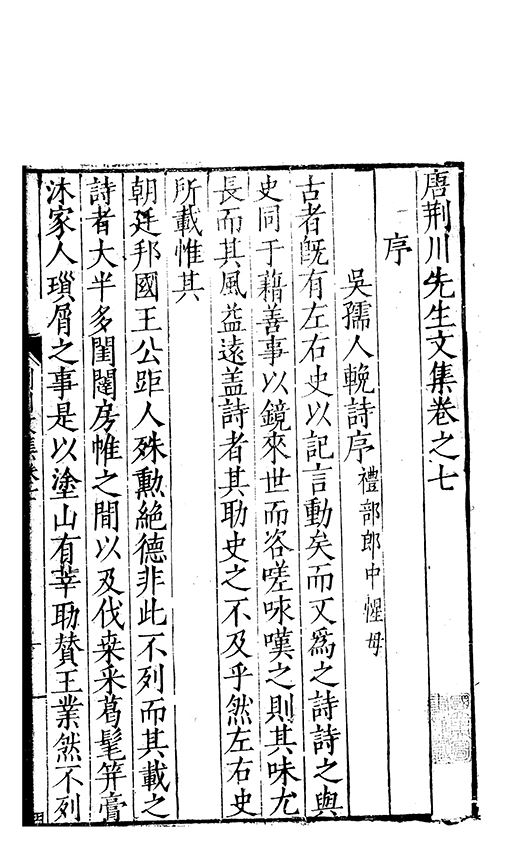 唐荆川先生文集卷之七
序
吳孺人輓詩序禮部郎中惺母
古者旣有左右史以記言動矣而又爲之詩詩之與
史同于藉善事以鏡來世而咨嗟咏嘆之則其味尤
長而其風益遠盖詩者其助史之不及乎然左右史
所載惟其
朝廷邦國王公距人殊勳絶德非此不列而其載之
詩者大半多閨闥房帷之間以及伐桒采葛髦笄膏
沐家人瑣屑之事是以塗山有莘助賛王業然不列